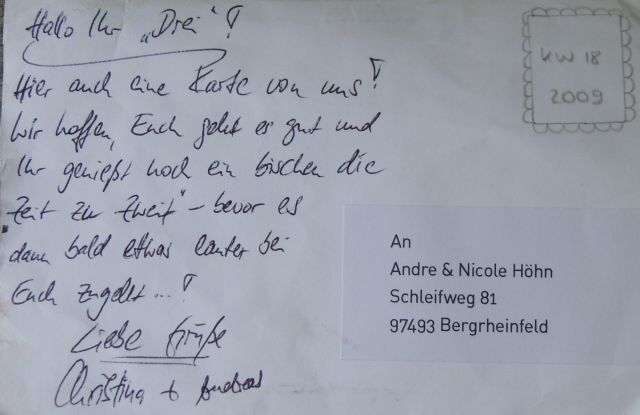 Hallo Ihr „Drei"!
Hier auch eine Karte von uns!
Wir hoffen, Euch geht es gut und
Ihr genießt noch ein bischen die
„Zeit zu Zweit" – bevor es
dann bald etwas lauter bei
Euch zugeht...!
Liebe Grüße
Christina + Andreas
KW 18
2009
An
Andre & Nicole Höhn
Schleifweg 81
97493 Bergrheinfeld